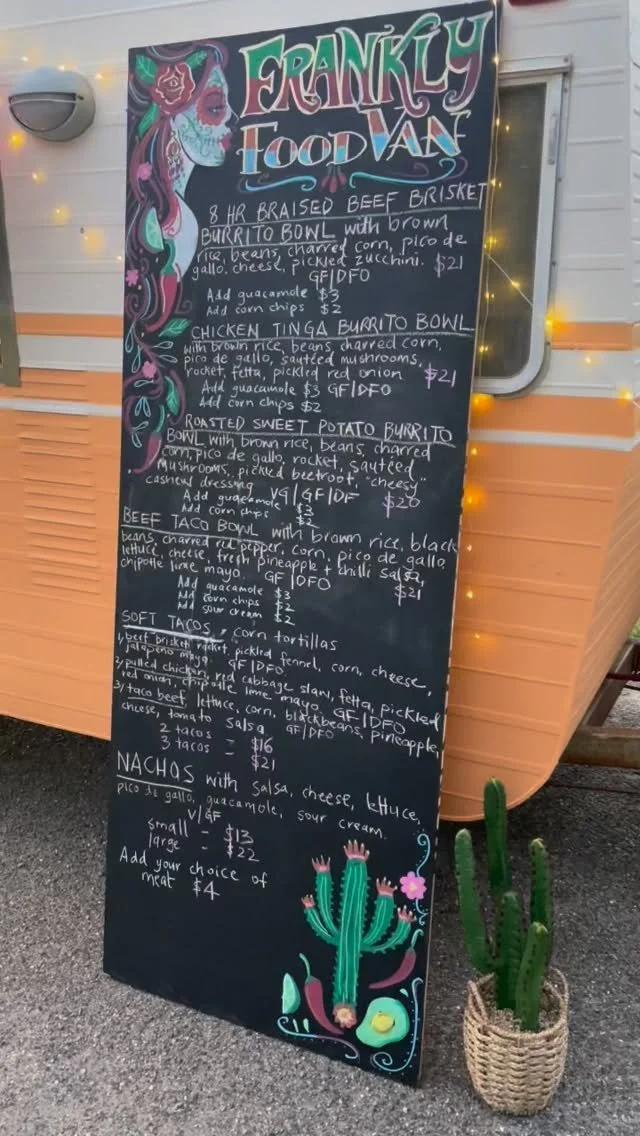 FRANKLY
FOOD VAN
8 HR BRAISED BEEF BRISKET
BURRITO BOWL with brown
rice, beans, charred corn, pico de
gallo, cheese, pickled zucchini. $21
GF|DFO
Add guacamole $3
Add corn chips $2
CHICKEN TINGA BURRITO BOWL
with brown rice, beans charred corn,
pico de gallo, sautéed mushrooms,
rocket, fetta, pickled red onion $21
Add guacamole $3 GF|DFO
Add corn chips $2
ROASTED SWEET POTATO BURRITO
BOWL with brown rice, beans, charred
corn, pico de gallo, rocket, sautéed
mushrooms, pickled beetroot, "cheesy"
cashew dressing VG|GF|DF $20
Add guacamole $3
Add corn chips $2
BEEF TACO BOWL with brown rice, black
beans, charred red pepper, corn, pico de gallo,
lettuce, cheese, fresh pineapple + chilli salsa,
chipotle lime mayo. GF|DFO $21
Add guacamole $3
Add corn chips $2
Add sour cream $2
SOFT TACOS, corn tortillas
1/ beef brisket, rocket, pickled fennel, corn, cheese,
jalapeno mayo. GF|DFO
2/ pulled chicken, red cabbage slaw, fetta, pickled
red onion, chipotle lime mayo GF|DFO
3/ taco beef, lettuce, corn, blackbeans, pineapple,
cheese, tomato salsa GF|DFO
2 tacos - $16
3 tacos - $21
NACHOS with salsa, cheese, lettuce,
pico de gallo, guacamole, sour cream.
V|GF
small - $13
large - $22
Add your choice of
meat $4